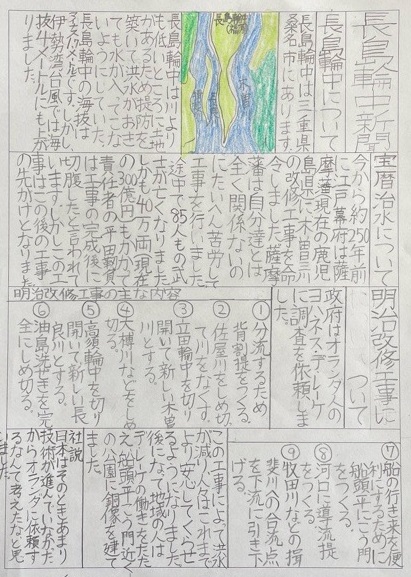 長島輪中新聞
長島輪中について
長島輪中は三重県
桑名市にあります。
長島輪中は川より
も低いところに土地
があるため堤防を
築いて洪水がおき
ても水が入ってこな
いようにしていた。
長島輪中の海抜は
です。しかし、
伊勢湾台風では海
抜4メートルにも上が
りました。
宝暦治水について
今から約250年前
に江戸幕府は薩
摩藩現在の鹿児
島県に木曽三川
の改修工事を命
令しました。薩摩
藩は自分達とは
全く関係ないの
にたいへん苦労して
工事を行いました
途中で85人もの武
士が亡くなりました
しかも40万両現在
の300億円もかかって
責任者の平田靱負
は工事の完成後に
切腹したと言われて
います。しかしこの工
事はこの後の工事
の先がけとなりました。
明治改修工事に
ついて
政府はオランダ人の
ヨハネス・デ・レーケ
に調査を依頼しま
した。
明治改修工事の主な内容
①分流するため
背割堤をつくる。
②佐屋川をしめ切っ
て川をなくす。
③立田輪中を切り
開いて新しい木曽
川とする。
④大榑川などをしめ
切る。
⑤高須輪中を切り
開いて新しい長
良川とする。
⑥油島洗ぜきを完
全にしめ切る。
⑦船の行き来を便
利にするために
船頭平にこう門
をつくる。
⑧河口に導流堤
をつくる。
⑨牧田川などの揖
斐川への合流点
を下流に引き下
げる。
この工事によって洪水
が減り人々はこれまで
より安心してくらせ
るようになりました
後になって地域の人は
デ・レーケの働きをたた
え、船頭平こう門近く
の公園に銅像を建て
ました。
社説
日本はそのときあまり
技術が進んでいなかった
からオランダに依頼す
るなんて考えたなと思
いました。